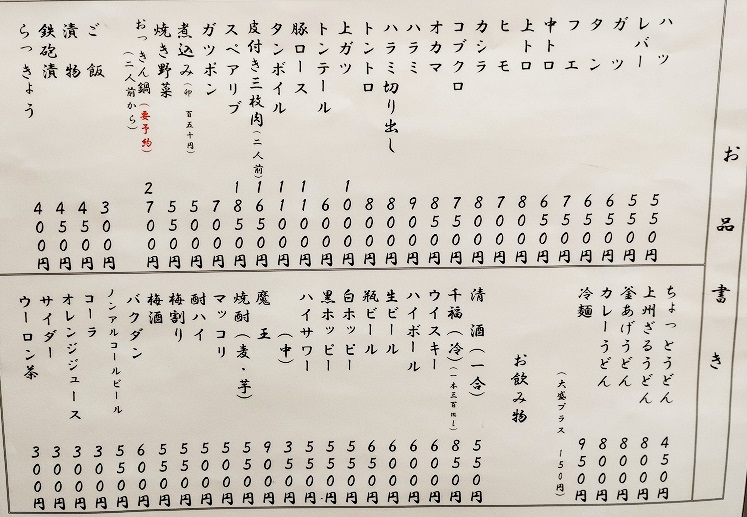 お品書き
ハツ 550円
レバー 550円
ガツ 650円
タン 650円
フエ 750円
中トロ 650円
上トロ 800円
ヒモ 700円
カシラ 800円
コブクロ 750円
オカマ 850円
ハラミ 900円
ハラミ切り出し 800円
トントロ 800円
上ガツ 1000円
トンテール 600円
豚ロース 1100円
タンボイル 1100円
皮付き三枚肉(二人前) 1650円
スペアリブ 1850円
ガツポン 700円
煮込み(卵 百五十円) 500円
焼き野菜 550円
おっきん鍋(要予約) 2700円
(二人前から)
ご飯 300円
漬物 450円
鉄砲漬 450円
らっきょう 400円
ちょっとうどん 450円
上州ざるうどん 800円
釜あげうどん 800円
カレーうどん 800円
冷麺 950円
(大盛プラス 150円)
お飲み物
清酒(一合) 550円
千福(冷)(一本三百ml) 850円
ウイスキー 600円
ハイボール 600円
生ビール 600円
瓶ビール 650円
白ホッピー 550円
黒ホッピー 550円
ハイサワー 550円
(中) 350円
魔王 900円
焼酎(麦・芋) 550円
マッコリ 550円
酎ハイ 500円
梅割り 550円
梅酒 500円
バクダン 600円
ノンアルコールビール 550円
コーラ 300円
オレンジジュース 300円
サイダー 300円
ウーロン茶 300円